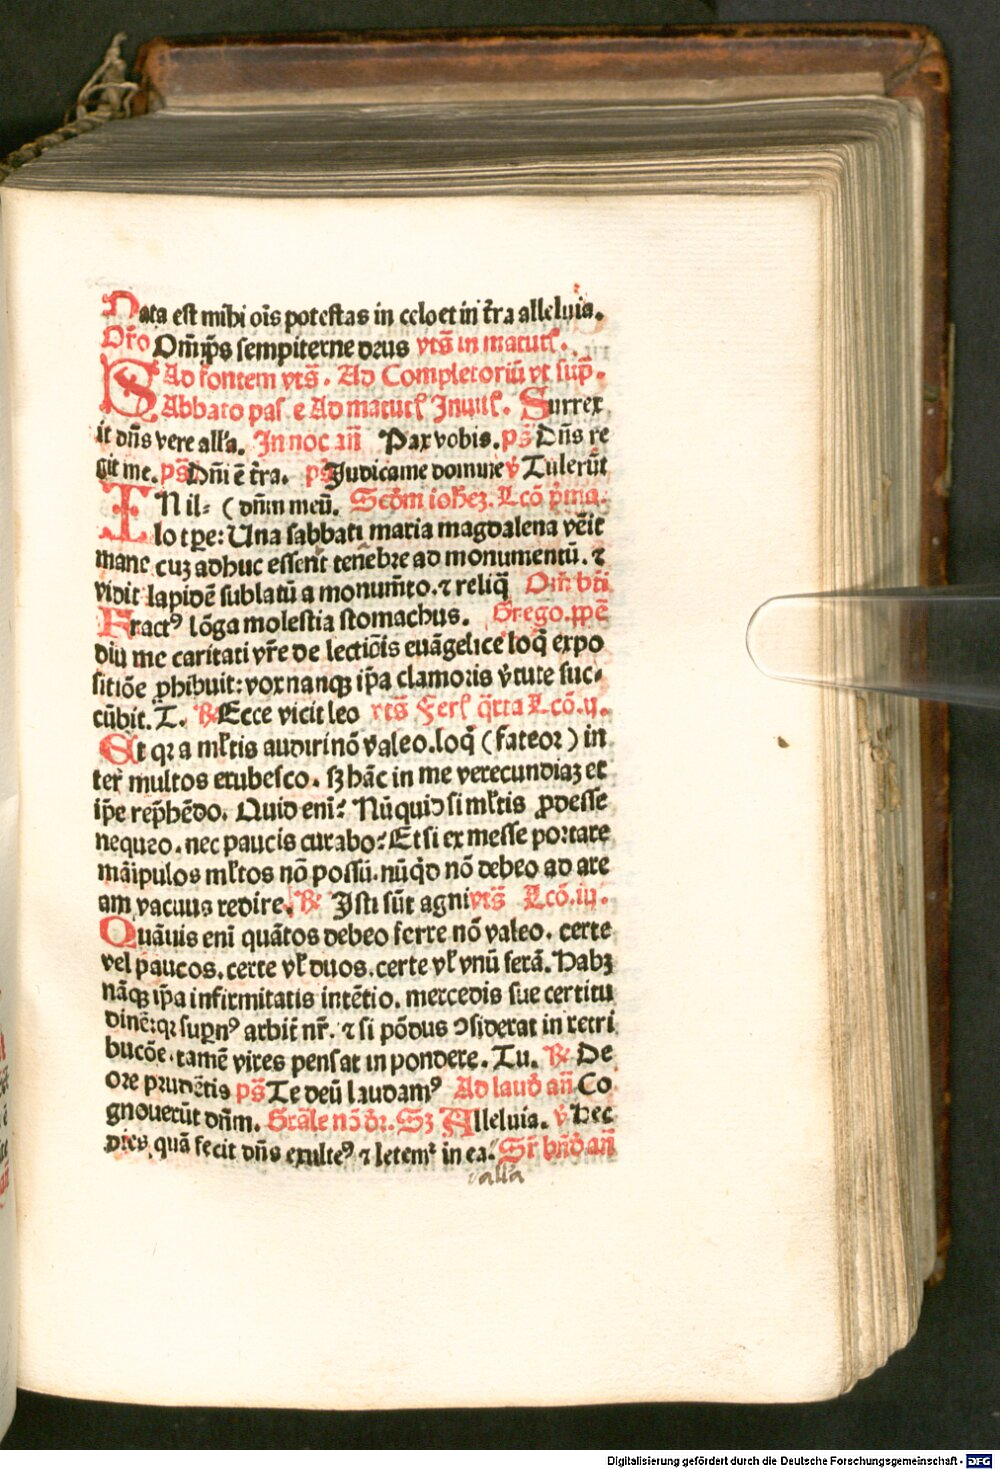 Data est mihi oīs potestas in celo et in t̄ra alleluia.
Or̄o Om̄ip̄s sempiterne deus vts̄ in matutꝭ.
Ad fontem vts̄. Ad Completoriū vt sup̄.
SAbbato pasꝭ e Ad matutꝭ Inuitꝭ. Surrex
it dn̄s vere allꝭa. In noc añ Pax vobis. ps̄ Dn̄s re
git me. ps̄ Dn̄i ē t̄ra. ps̄ Judica me domine v̄ Tulerūt
IN il- ( dn̄m meū. Scd̄m ioh̄ez. Lcō p̄ma.
lo tꝑe: Una sabbati maria magdalena vēit
mane cuꝫ adhuc essent tenebre ad monumentū. ⁊
vidit lapidē sublatū a monum̄to. ⁊ reliq̄ Om̄ bt̄i
Fractꝰ lōga molestia stomachus. Grego. ppē
diu me caritati vr̄e de lectiōis euāgelice loq̄ expo
sitiōe ꝓhibuit: vox nanqꝫ ip̄a clamoris v̄tute suc-
cūbit. T. ℟ Ecce vicit leo vts̄ Ferꝭ q̄rta Lcō. ij.
Et qꝛ a mlꝭtis audiri nō valeo. loq̄ ( fateor ) in
ter̄ multos erubesco. sꝫ hāc in me verecundiaꝫ et
ip̄e rep̄hēdo. Quid eni: Nūquid si mlꝭtis ꝓdesse
nequeo. nec paucis curabo: Et si ex messe portare
māipulos mlꝭtos nō possū. nūqd̄ nō debeo ad are
am vacuus redire. ℟ Isti sūt agni vts̄ Lcō. iij.
Quāuis eni quātos debeo ferre nō valeo. certe
vel paucos. certe vlꝭ duos. certe vlꝭ vnū ferā. Habꝫ
nāqꝫ ip̄a infirmitatis intētio. mercedis sue certitu
dinē: qꝛ sup̄nꝰ arbit̄ nr̄. ⁊ si pōdus ꝯsiderat in retri
bucōe. tamē vires pensat in pondere. Tu. ℟ De
ore prudētis ps̄ Te deū laudamꝰ Ad laud̄ añ Co
gnouerūt dn̄m. Grāle nō dꝛ. Sꝫ Alleluia. v̄ Hec
dies, quā fecit dn̄s exulteꝰ ⁊ letemꝰ in ea. Sr̄ bn̄d̄ añ
alla
Digitalisierung gefördert durch die Deutsche Forschungsgemeinschaft - DFG